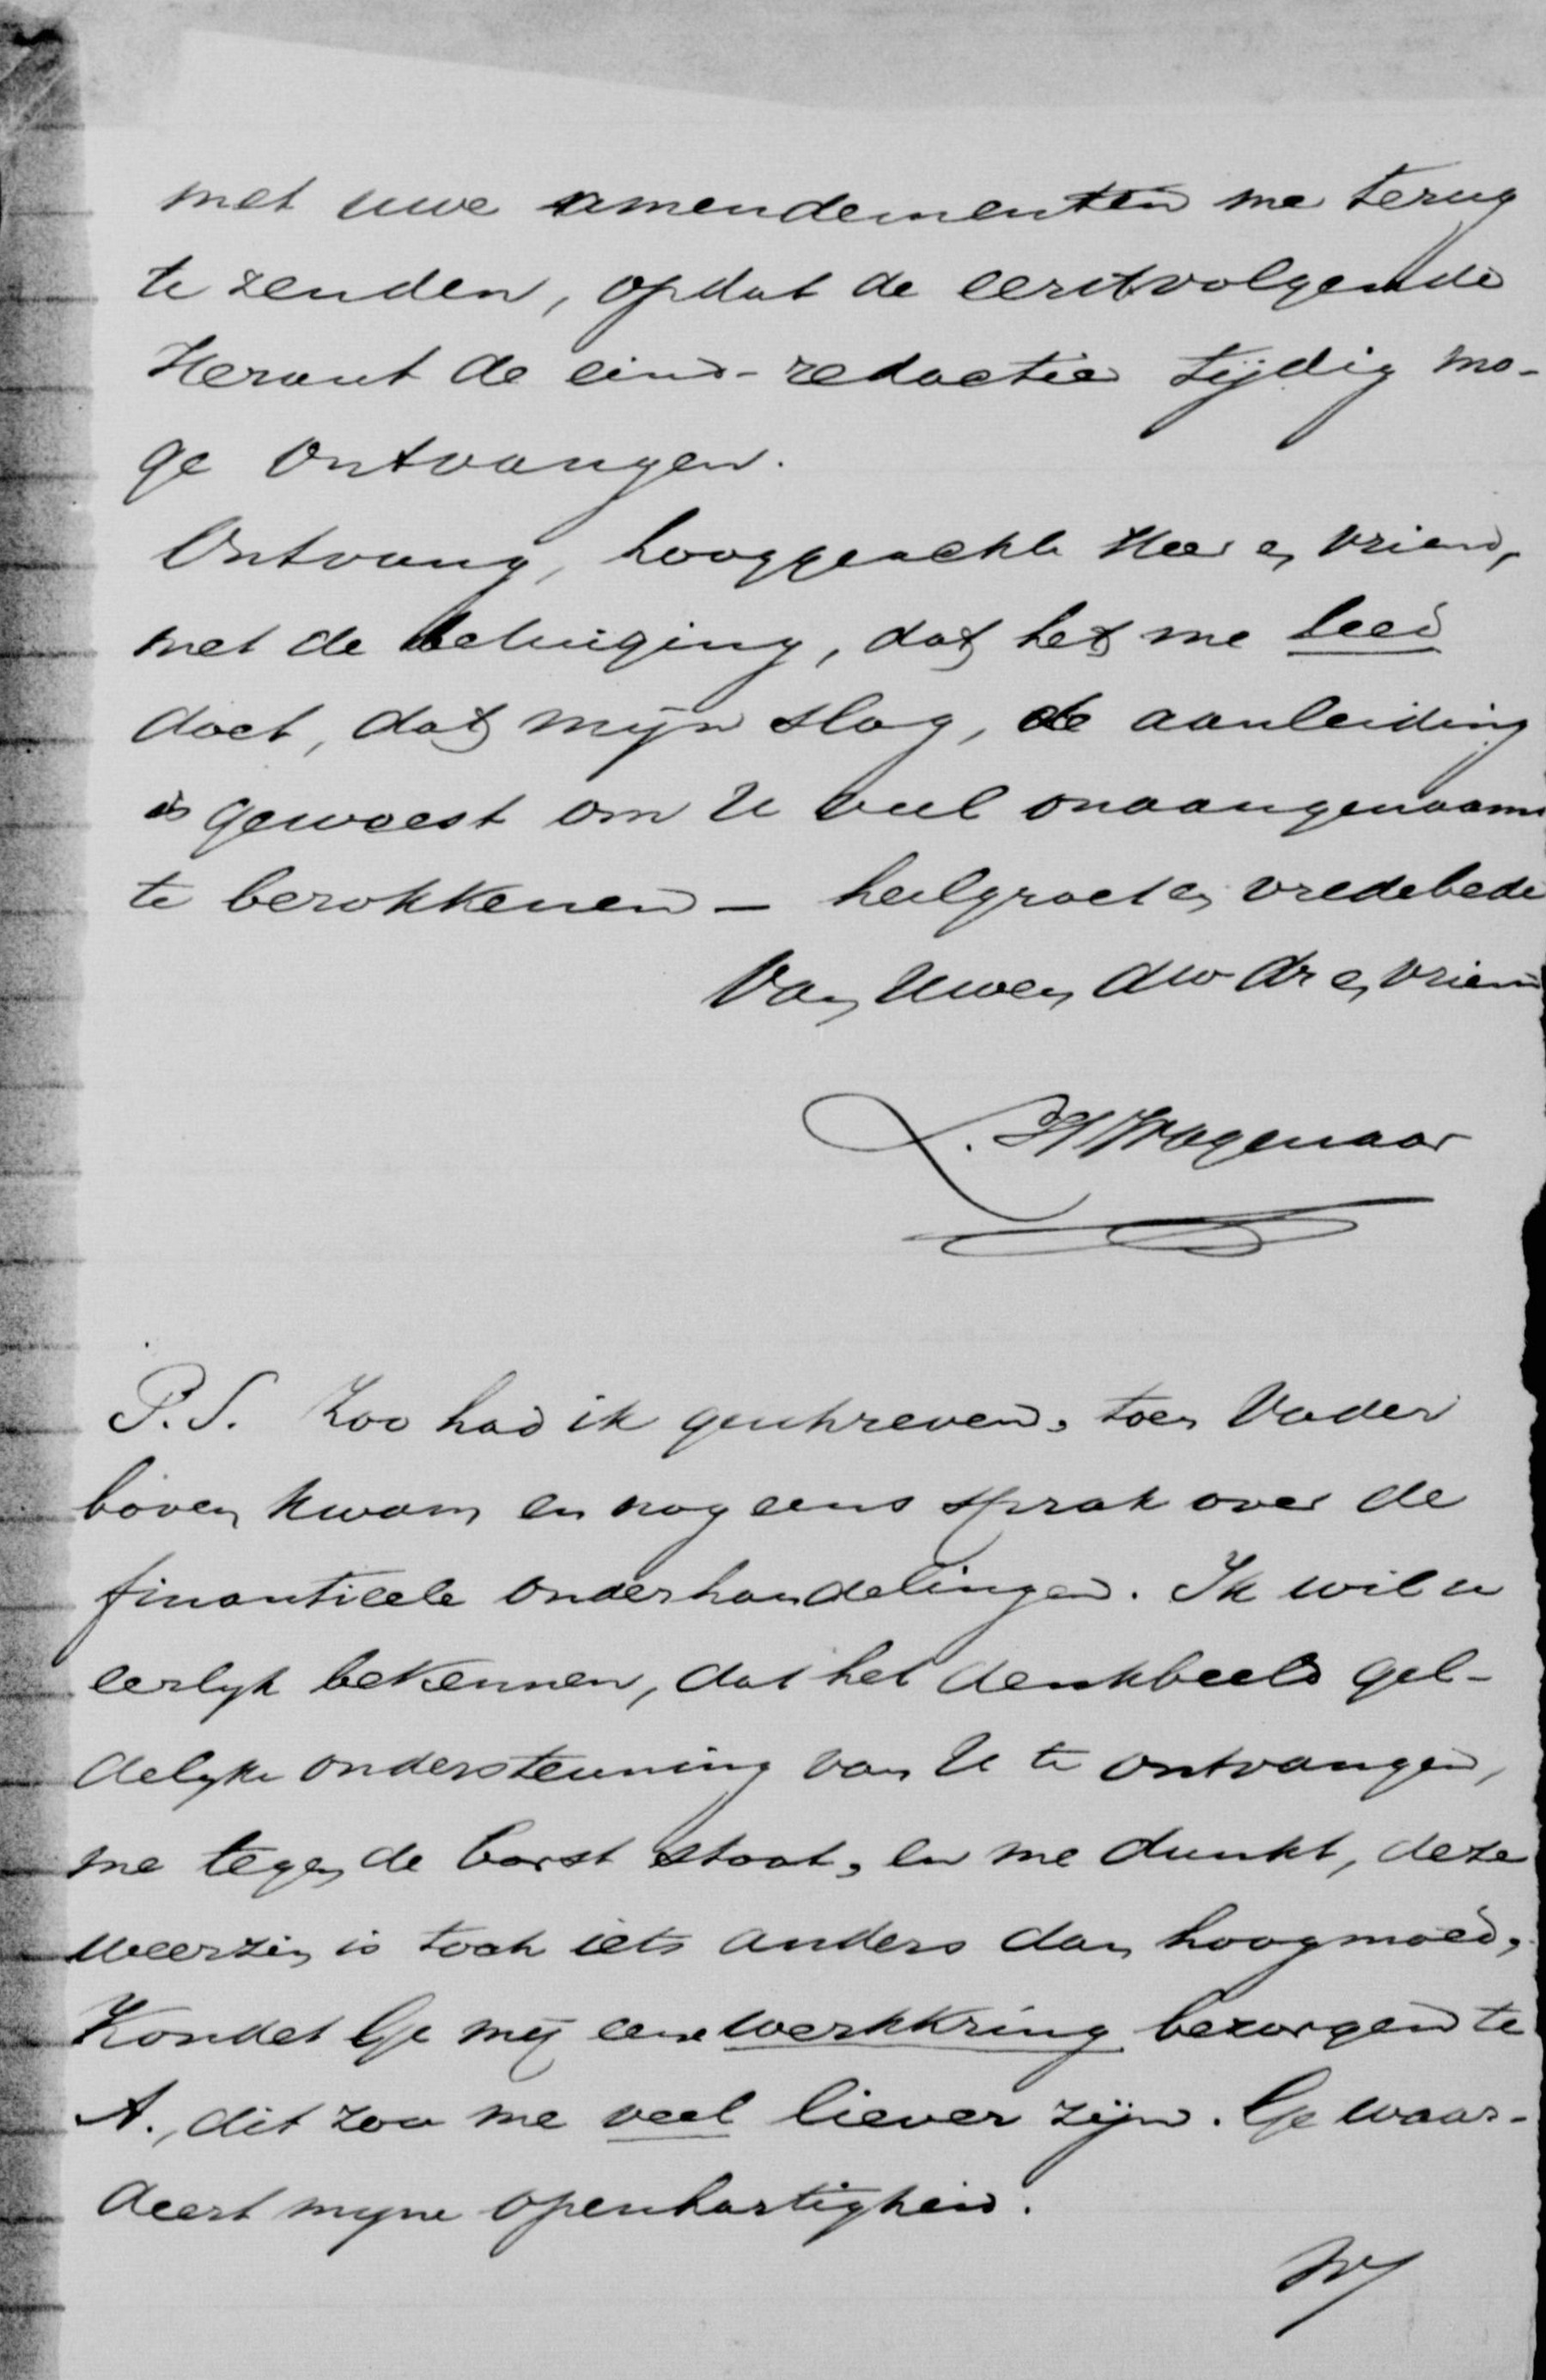 met uwe amendementen me terug
te zenden, opdat de eerstvolgende
Heraut de eind-redactie tijdig mo-
ge ontvangen.
Ontvang, hooggeachte Heer en vriend,
met de betuiging, dat het me leed
doet, dat mijn slag, de aanleiding
is geweest om U veel onaangenaams
te berokkenen - heilgroet en vredebede
Van Uwen dw dr en vriend
L. H Wagenaar
P.S. Zoo had ik geschreven, toen Vader
boven kwam en nog eens sprak over de
finantieele onderhandelingen. Ik wil u
eerlyk bekennen, dat het denkbeeld gel-
delyke ondersteuning van U te ontvangen,
me tegen de borst stoot, en me dunkt, deze
weerzin is toch iets anders dan hoogmoed,
Kondet Ge mij eene werkkring bezorgen te
A., dit zou me veel liever zijn. Ge waar-
deert myne openhartigheid.
W